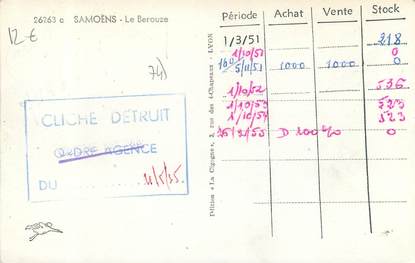 26263 c SAMOËNS - Le Berouze
12 €
74)
CLICHÉ DÉTRUIT
ORDRE AGENCE
DU 11/5/55.
Edition "La Cigogne", 2, rue des 4-Chapeaux - LYON
Période Achat Vente Stock
1/3/51 218
1/10/51 0
5/11/51 1000 1000 0
1/10/52 536
1/10/53 523
1/10/54 523
25/2/55 D 100 % 0